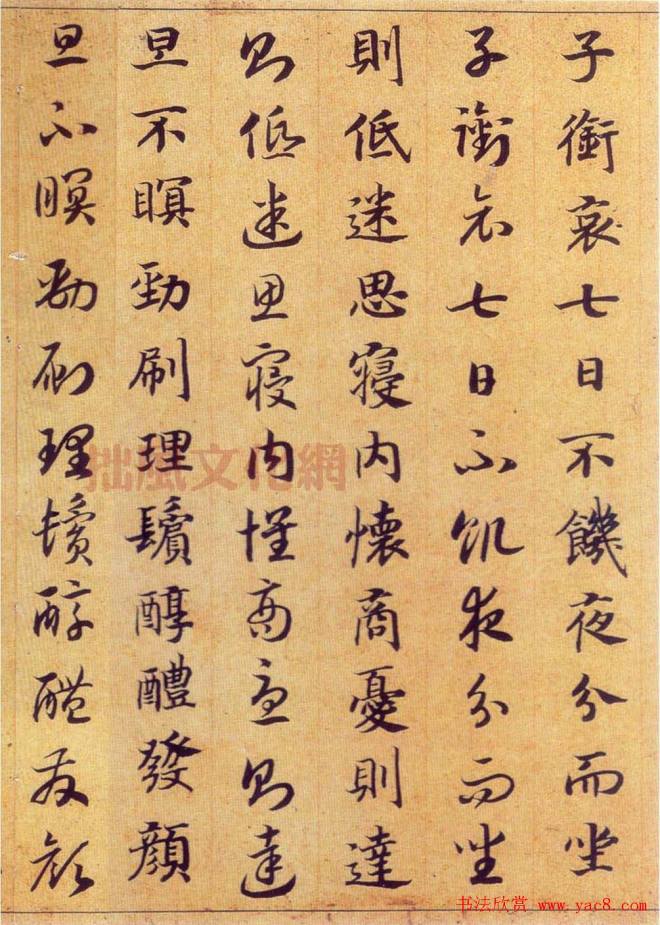 子銜哀七日不饑夜分而坐
子銜哀七日不飢夜分而坐
則低迷思寢內懷商憂則達
則低迷思寢內懷商憂則達
旦不瞑勁刷理鬢醇醴發顏
旦不瞑勁刷理鬢醇醴發顏
拙風文化網
书法欣赏 www.yac8.com